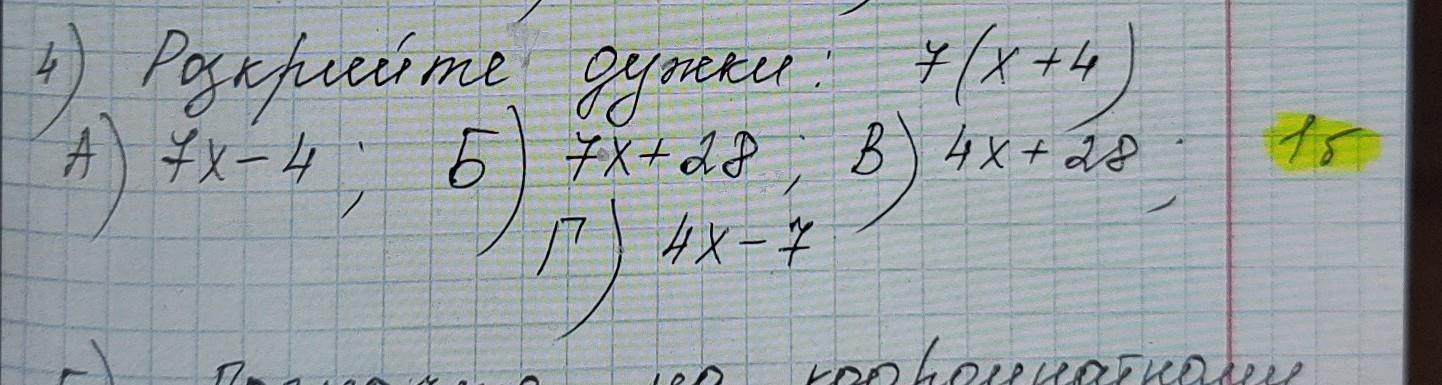 4) Розкрийте дужки: 7(x+4)
А) 7x-4; Б) 7x+28; В) 4x+28; 1б
Г) 4x-7